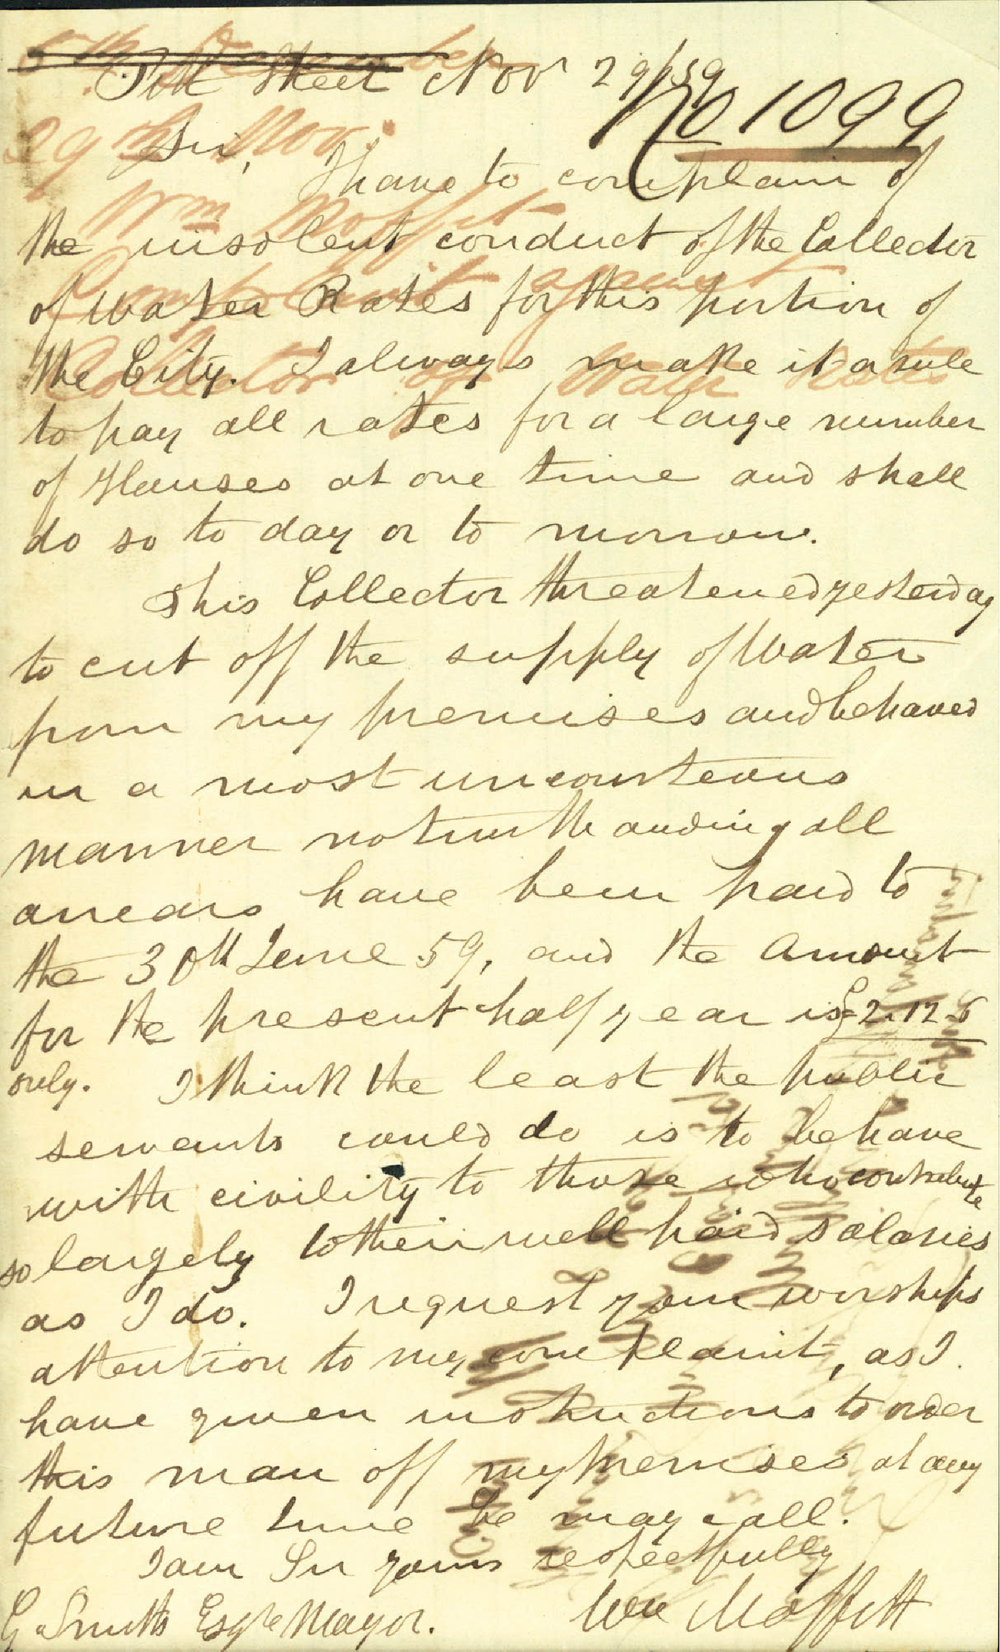 Pitt Street Nov 29/59
No 1099
Sir,
I have to complain of
the insolent conduct of the Collector
of Water Rates for this portion of
the City. I always make it a rule
to pay all rates for a large number
of Houses at one time and shall
do so to day or to morrow.
This Collector threatened yesterday
to cut off the supply of Water
from my premises and behaved
in a most uncourteous
manner notwithanding all
arrears have been paid to
the 30th June 59, and the amount
for the present half year is £2.12.5
only. I think the least the public
servants could do is to behave
with civility to those who contribute
so largely to their well paid salaries
as I do. I request your worships
attention to my complaint, as I
have given instructions to order
this man off my premises at any
future time he may call.
I am Sir yours respectfully
Wm Moffitt
G Smith Esqre Mayor.
29th Nov.
Wm Moffitt
Complaint against
Collector of Water Rates